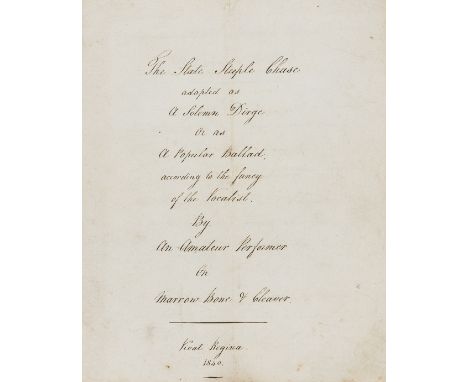 The State Steeple Chase
adapted as
A Solemn Dirge
Or as
A Popular Ballad,
according to the fancy
of the Vocalist.
By
An Amateur Performer
On
Marrow Bone & Cleaver.
Vivat Regina
1840.